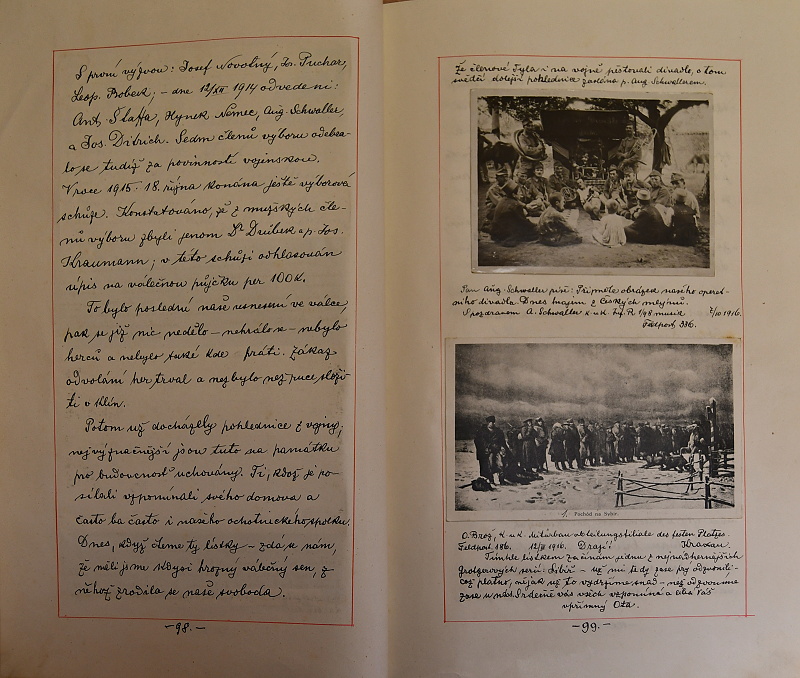 S první výzvou: Josef Novotný, Jos. Puchar,
Leop. Bobek; – dne 12/XII 1914 odvedeni:
Ant. Štaffa, Hynek Němec, Aug. Schwaller,
a Jos. Ditrich. Sedm členů výboru odebra-
lo se tudíž za povinností vojenskou.
V roce 1915 - 18. října konána ještě výborová
schůze. Konstatováno, že z mužských čle-
nů výboru zbyli jenom Dr Drúbek a p. Jos.
Kraumann; v této schůzi odhlasován
úpis na válečnou půjčku per 100 K.
To bylo poslední naše usnesení ve válce,
pak se již nic nedělo – nehrálo se – nebylo
herců a nebylo také kde hráti. Zákaz
odvolání her trval a nezbylo než ruce složi-
ti v klín.
Potom už docházely pohlednice z vojny,
nejvýznačnější jsou tuto na památku
pro budoucnost uchovány. Ti, kdož je po-
sílali vzpomínali svého domova a
často ba často i našeho ochotnického spolku.
Dnes, když čteme ty lístky – zdá se nám,
že měli jsme kdysi hrozný válečný sen, z
něhož zrodila se naše svoboda.
– 98. –
Že členové Tyla i na vojně pěstovali divadlo, o tom
svědčí dolejší pohlednice zaslána p. Aug. Schwallerem.
Pan Aug. Schwaller píše: Přijměte obrázek našeho operet-
ního divadla Dnes hrajem z Českých mlýnů.
S pozdravem A. Schwaller k.u.k. Inf. R. 1/98 musik 7/10 1916.
Feldpost, 336.
1. Pochod na Sybir.
O. Brož, k. u k. Militärbauabteilungsfiliale des festen Platzes.
Feldpost 186. 12/III 1916. Drazí! Krakau.
Tímhle lístkem začínám jednu z nejnádhernějších
grotgerových serií: Sibiř – až mi tedy zase prý odzvonili-
což platno, nějak už to vydržíme snad – než odzvoníme
zase u nás. Srdečně vás všech vzpomíná a líbá Váš
upřímný Ota.
– 99. –